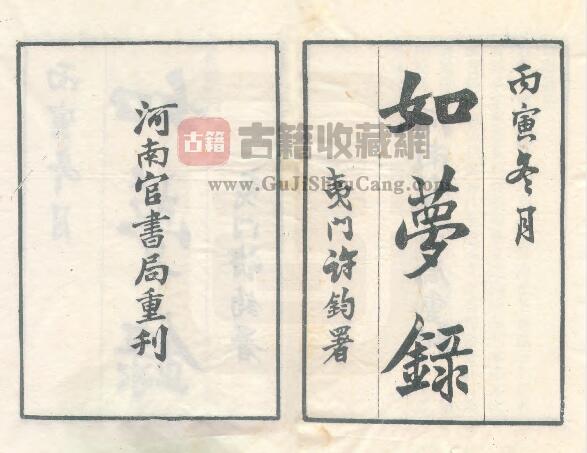 丙寅冬月
如夢錄
夷门許鈞署
河南官書局重刊
古籍
古籍收藏網
www.GuJiShouCang.com